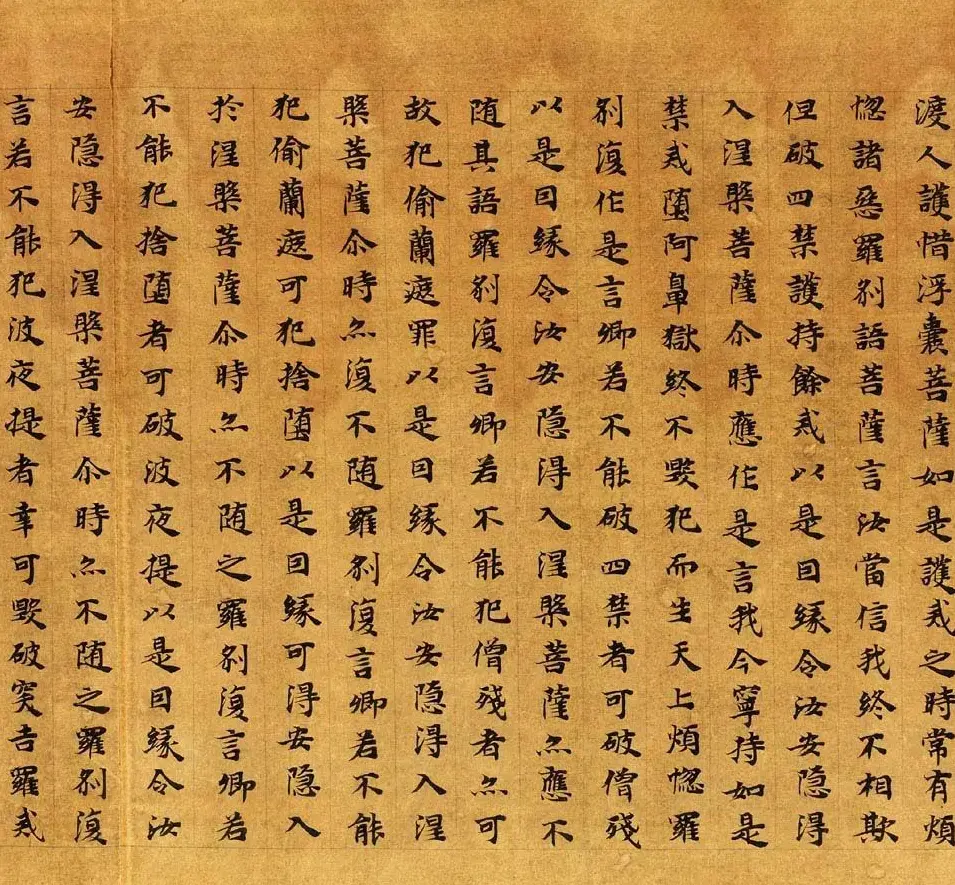 渡人護惜浮囊菩薩如是護戒之時常有煩
惚諸惡羅刹語菩薩言汝當信我終不相欺
但破四禁護持餘戒以是因緣令汝安隱得
入涅槃菩薩尒時應作是言我今寧持如是
禁戒墮阿鼻獄終不毀犯而生天上煩惚羅
刹復作是言卿若不能破四禁者可破僧殘
以是因緣令汝安隱得入涅槃菩薩亦應不
随其語羅刹復言卿若不能犯僧殘者亦可
故犯偷蘭遮罪以是因緣令汝安隱得入涅
槃菩薩尒時亦復不随羅刹復言卿若不能
犯偷蘭遮可犯捨墮以是因緣可得安隱入
於涅槃菩薩尒時亦不随之羅刹復言卿若
不能犯捨墮者可破波夜提以是因緣令汝
安隱得入涅槃菩薩尒時亦不随之羅刹復
言若不能犯波夜提者幸可毀破突吉羅戒